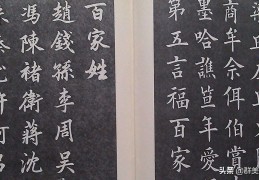 商牟佘佴伯賞
墨哈譙笪年愛
第五言福百家
百家姓
趙錢孫李周吳
馮陳褚衛蔣沈
头条 @群美